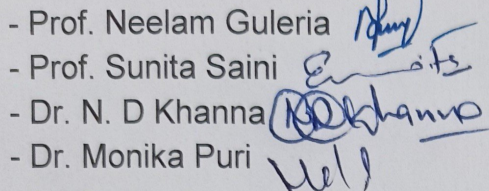 - Prof. Neelam Guleria
- Prof. Sunita Saini
- Dr. N. D Khanna NDKhanna
- Dr. Monika Puri